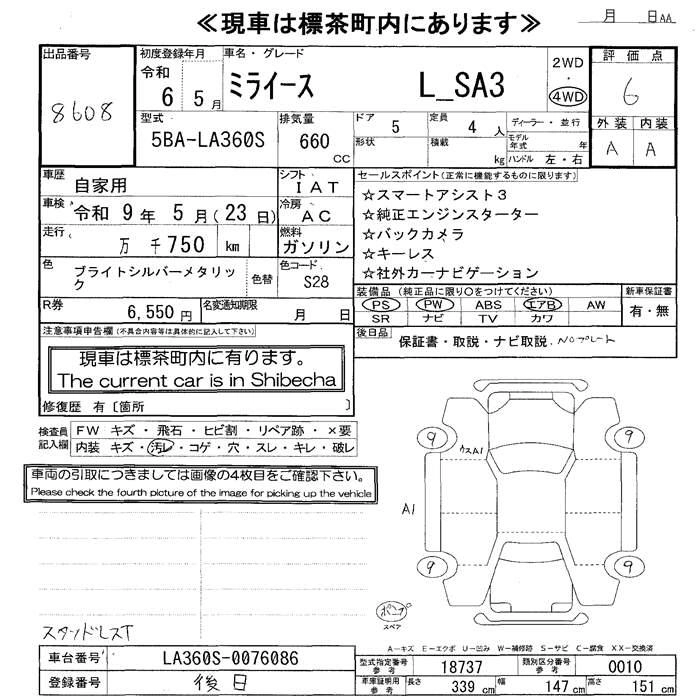 ≪現車は標茶町内にあります≫
月 日AA
出品番号
8608
初度登録年月
令和
6 5月
車名・グレード
ミライース L_SA3
2WD
・
4WD
評価点
6
外装 内装
A A
型式
5BA-LA360S
排気量
660
cc
ドア 5
形状
定員 4 人
積載 kg
ディーラー・並行
モデル
年式 年
ハンドル 左・右
車歴
自家用
シフト
IAT
車検 令和 9年 5月(23日)
冷房
AC
走行
万 千750 km
燃料
ガソリン
色
ブライトシルバーメタリッ
ク
色替
色コード
S28
R券
6,550円
名変通知期限
月 日
セールスポイント(正常に機能するものに限ります)
☆スマートアシスト3
☆純正エンジンスターター
☆バックカメラ
☆キーレス
☆社外カーナビゲーション
装備品(純正品に限り○をつけてください)
PS PW ABS エアB AW
SR ナビ TV カワ
新車保証書
有・無
後日品
保証書・取説・ナビ取説、Noプレート
注意事項申告欄(不具合内容等は具体的に記入して下さい)
現車は標茶町内に有ります。
The current car is in Shibecha
修復歴 有〔箇所 〕
検査員
記入欄
FW キズ・飛石・ヒビ割・リペア跡・×要
内装 キズ・汚レ・コゲ・穴・スレ・キレ・破レ
車両の引取につきましては画像の4枚目をご確認下さい。
Please check the fourth picture of the image for picking up the vehicle
9 9
ウスA1
A1
9 9
パンク
スペア
スタッドレスT
A-キズ E-エクボ U-凹み W-補修跡 S-サビ C-腐食 XX-交換済
車台番号 LA360S-0076086
登録番号 後日
型式指定番号
参考
18737
類別区分番号
参考
0010
車庫証明用
参考
長さ 339 cm 幅 147 cm 高さ 151 cm